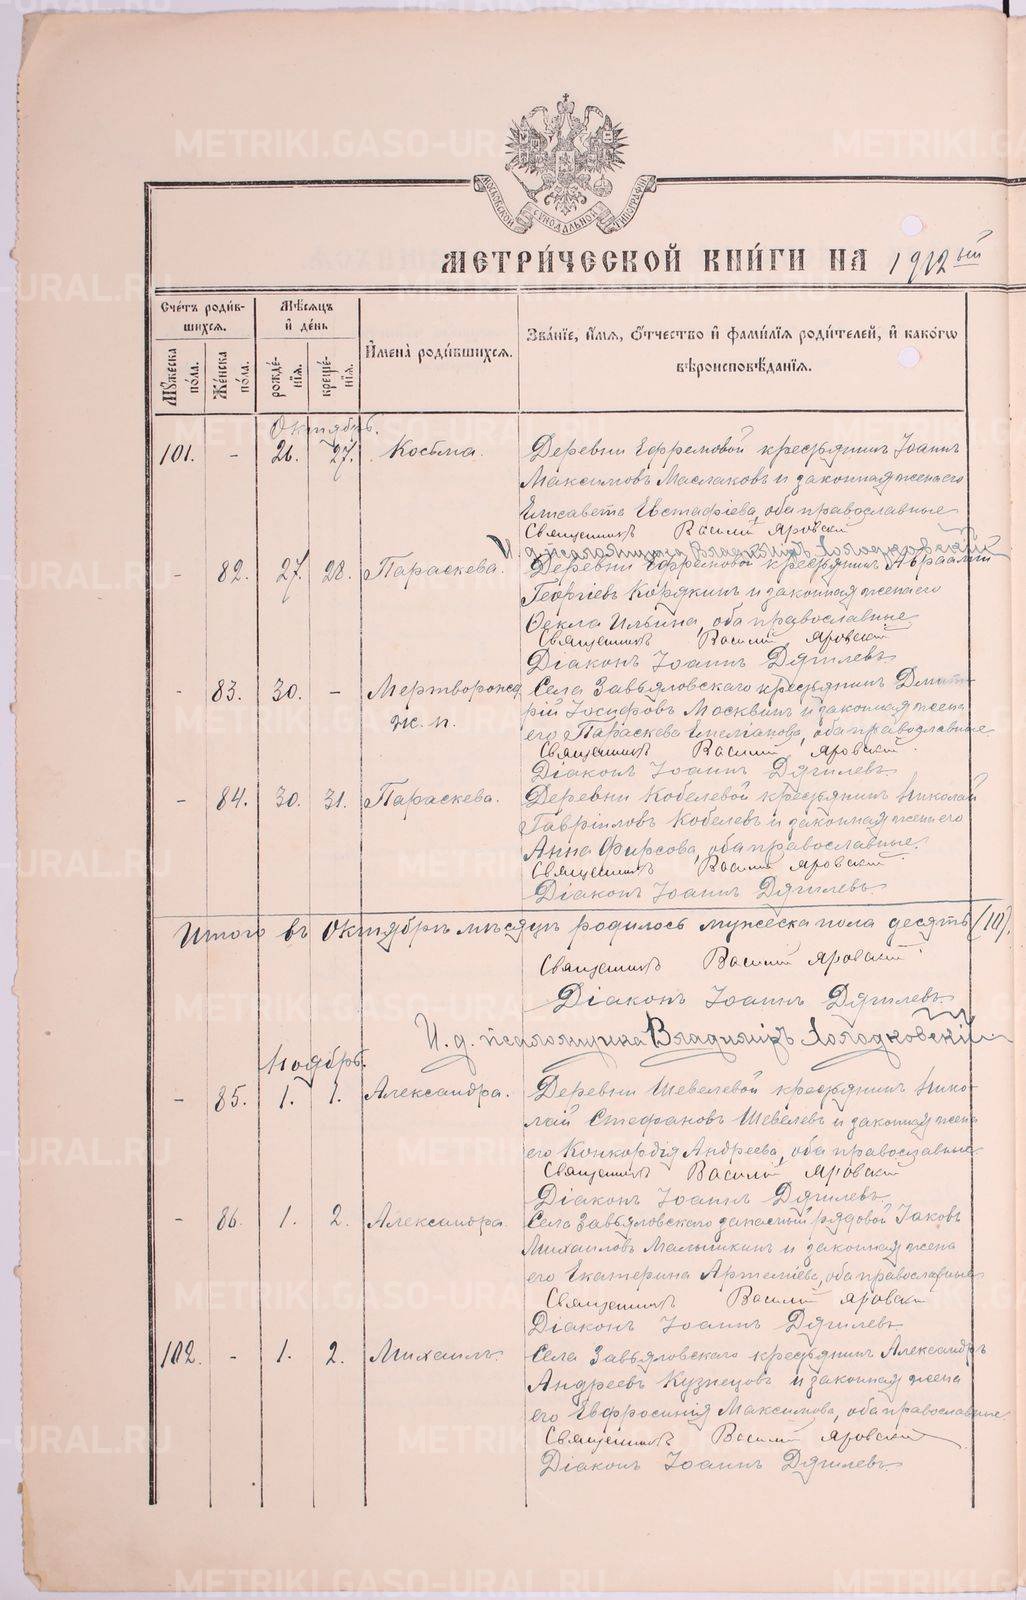 METRIKI.GASO-URAL.RU
МОСКОВСКОЙ СѴНОДАЛЬНОЙ ТИПОГРАФІИ
МЕТРИ́ЧЕСКОЙ КНИ́ГИ НА 1912ый
Сче́тъ роди́вшихся.
Мꙋ́жеска по́ла.
Же́нска по́ла.
Мѣ́сяцъ и҆ де́нь
рожде́нїя.
креще́нїя.
И҆мена̀ роди́вшихся.
Зва́нїе, и҆́мя, ѻ҆́тчество и҆ фами́лїя роди́телей, и҆ како́гѡ вѣроисповѣ́данїя.
Октябрь.
101. - 26. 27. Косьма. Деревни Ефремовой крестьянинъ Іоаннъ
Максимовъ Маслаковъ и законная жена его
Елисавета Евстафіева, оба православные
Священникъ Василій Яровскій
И. д. псаломщика Владиміръ Холодковскій
- 82. 27. 28. Параскева. Деревни Ефремовой крестьянинъ Авраамій
Георгіевъ Корякинъ и законная жена его
Ѳекла Ильина, оба православные
Священникъ Василій Яровскій
Діаконъ Іоаннъ Дягилевъ
- 83. 30. - Мертворожд. Села Завьяловскаго крестьянинъ Дмит-
ж. п. рій Іосифовъ Москвинъ и законная жена
его Параскева Емеліанова, оба православные
Священникъ Василій Яровскій.
Діаконъ Іоаннъ Дягилевъ
- 84. 30. 31. Параскева. Деревни Кобелевой крестьянинъ Николай
Гавріиловъ Кобелевъ и законная жена его
Анна Фирсова, оба православные.
Священникъ Василій Яровскій.
Діаконъ Іоаннъ Дягилевъ
Итого въ Октябрѣ мѣсяцѣ родилось мужеска пола десять (10).
Священникъ Василій Яровскій.
Діаконъ Іоаннъ Дягилевъ
И. д. псаломщика Владиміръ Холодковскій
Ноябрь.
- 85. 1. 1. Александра. Деревни Шевелевой крестьянинъ Нико-
лай Стефановъ Шевелевъ и законная жена
его Конкордія Андреева, оба православные
Священникъ Василій Яровскій
Діаконъ Іоаннъ Дягилевъ
- 86. 1. 2. Александра. Села Завьяловскаго запасный рядовой Іаковъ
Михаиловъ Малышкинъ и законная жена
его Екатерина Артеміева, оба православные
Священникъ Василій Яровскій
Діаконъ Іоаннъ Дягилевъ
102. - 1. 2. Михаилъ. Села Завьяловскаго крестьянинъ Александръ
Андреевъ Кузнецовъ и законная жена
его Евфросинія Максимова, оба православные.
Священникъ Василій Яровскій
Діаконъ Іоаннъ Дягилевъ